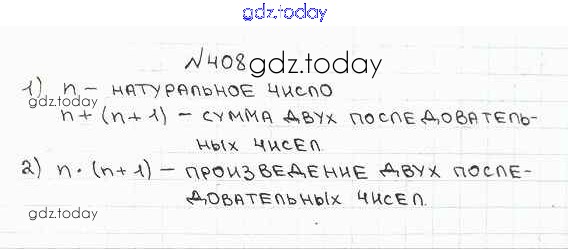 gdz.today
№408
gdz.today
1) n – НАТУРАЛЬНОЕ ЧИСЛО
gdz.today
n+(n+1) – СУММА ДВУХ ПОСЛЕДОВАТЕЛЬ-
НЫХ ЧИСЕЛ.
2) n·(n+1) – ПРОИЗВЕДЕНИЕ ДВУХ ПОСЛЕ-
ДОВАТЕЛЬНЫХ ЧИСЕЛ.
gdz.today